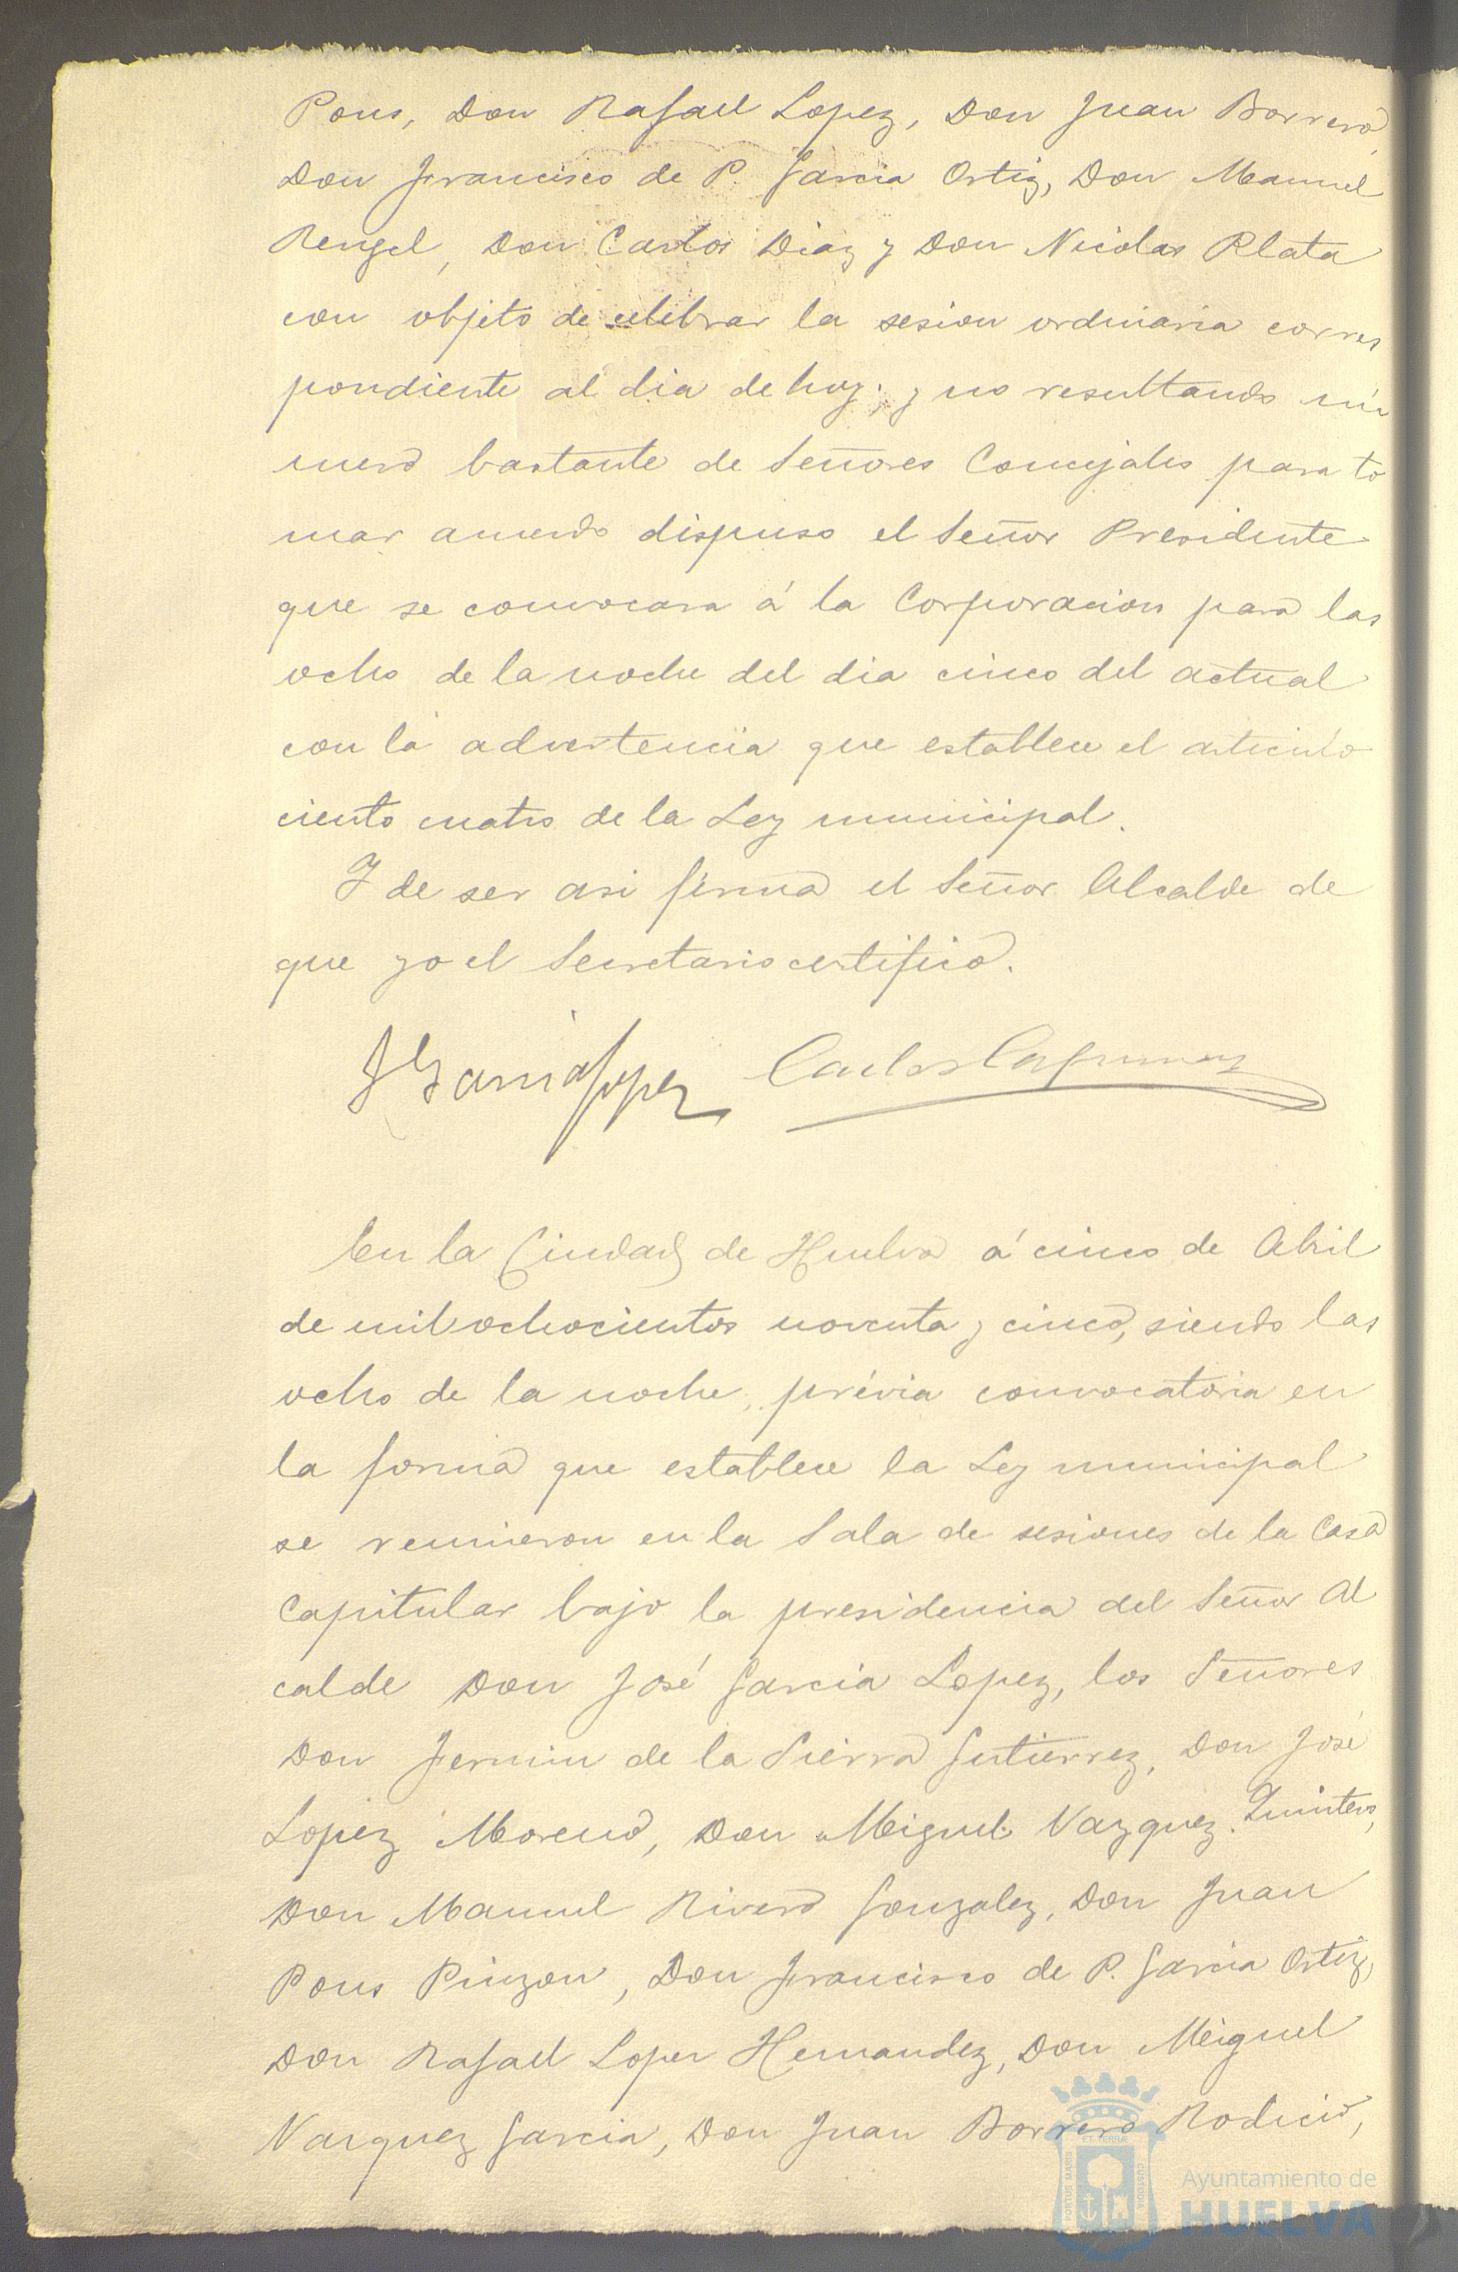 Pons, Don Rafael Lopez, Don Juan Borrero,
Don Francisco de P. Garcia Ortiz, Don Manuel
Rengel, Don Carlos Diaz y Don Nicolas Plata
con objeto de celebrar la sesion ordinaria corres
pondiente al dia de hoy; y no resultando nú
mero bastante de Señores Concejales para to
mar acuerdo dispuso el Señor Presidente
que se convocara á la Corporacion para las
ocho de la noche del dia cinco del actual
con la advertencia que establece el articulo
ciento cuatro de la Ley municipal.
Y de ser asi firma el Señor Alcalde de
que yo el Secretario certifico.
J Garcia Lopez Carlos
En la Ciudad de Huelva á cinco de Abril
de mil ochocientos noventa y cinco, siendo las
ocho de la noche, prévia convocatoria en
la forma que establece la Ley municipal
se reunieron en la Sala de sesiones de la Casa
Capitular bajo la presidencia del Señor Al
calde Don José Garcia Lopez, los Señores
Don Fermin de la Sierra Gutierrez, Don José
Lopez Moreno, Don Miguel Vazquez Quintero,
Don Manuel Rivero Gonzalez, Don Juan
Pons Pinzon, Don Francisco de P. Garcia Ortiz,
Don Rafael Lopez Hernandez, Don Miguel
Vazquez Garcia, Don Juan Borrero Rodicio,
PORTUS MARIS ET TERRÆ CUSTODIA
Ayuntamiento de
HUELVA